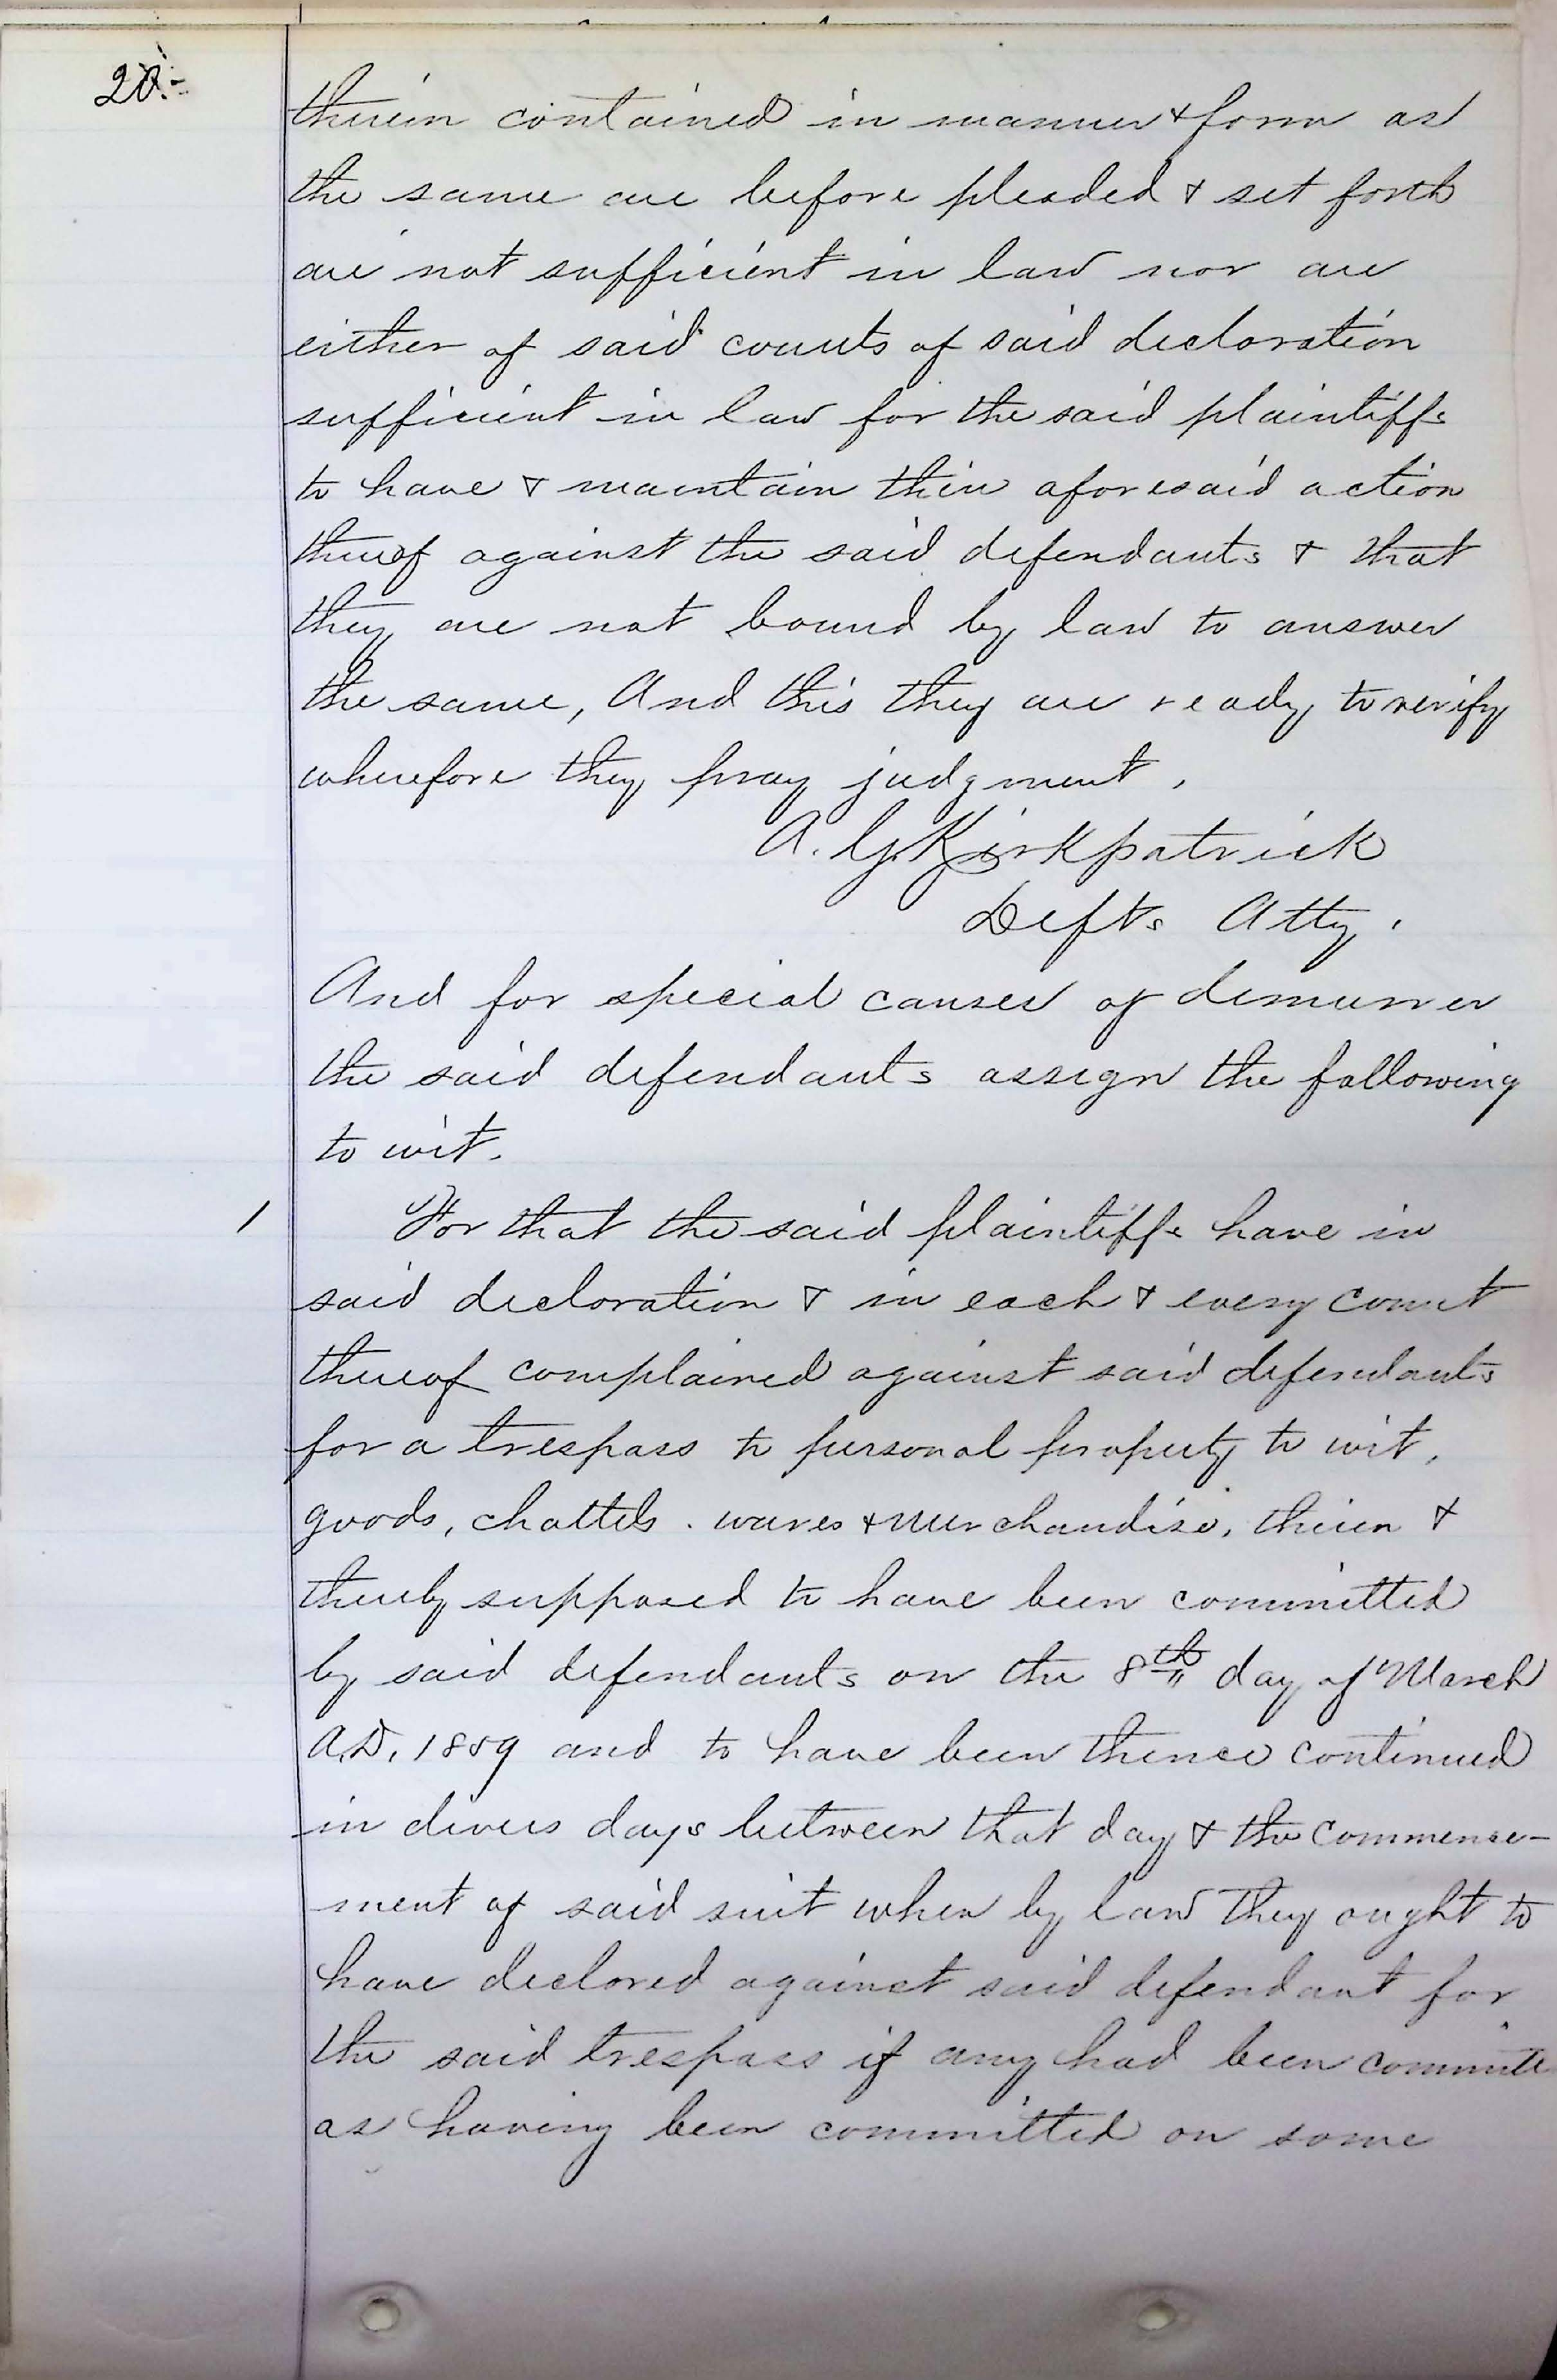 20.-
therein contained in manner & form as
the same are before pleaded & set forth
are not sufficient in law nor are
either of said counts of said declaration
sufficient in law for the said plaintiffs
to have & maintain their aforesaid action
thereof against the said defendants & that
they are not bound by law to answer
the same, And this they are ready to verify
wherefore they pray judgment.
A. G. Kirkpatrick
Defts Atty.
And for special causes of demurrer
the said defendants assign the following
to wit.
1 For that the said plaintiffs have in
said declaration & in each & every count
thereof complained against said defendants
for a trespass to personal property to wit,
goods, chattels. wares & merchandise, therein &
thereby supposed to have been committed
by said defendants on the 8th day of March
A.D. 1859 and to have been thence continued
in divers days between that day & the commence-
ment of said suit when by law they ought to
have declared against said defendant for
the said trespass if any had been committe
as having been committed on some